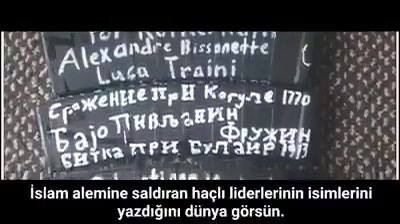 Alexandre Bissonette
Luca Traini
Сражение при Кагуле 1770
Бајо Пивљанин
Фружин
Битка при Булаир 1913
İslam alemine saldıran haçlı liderlerinin isimlerini
yazdığını dünya görsün.